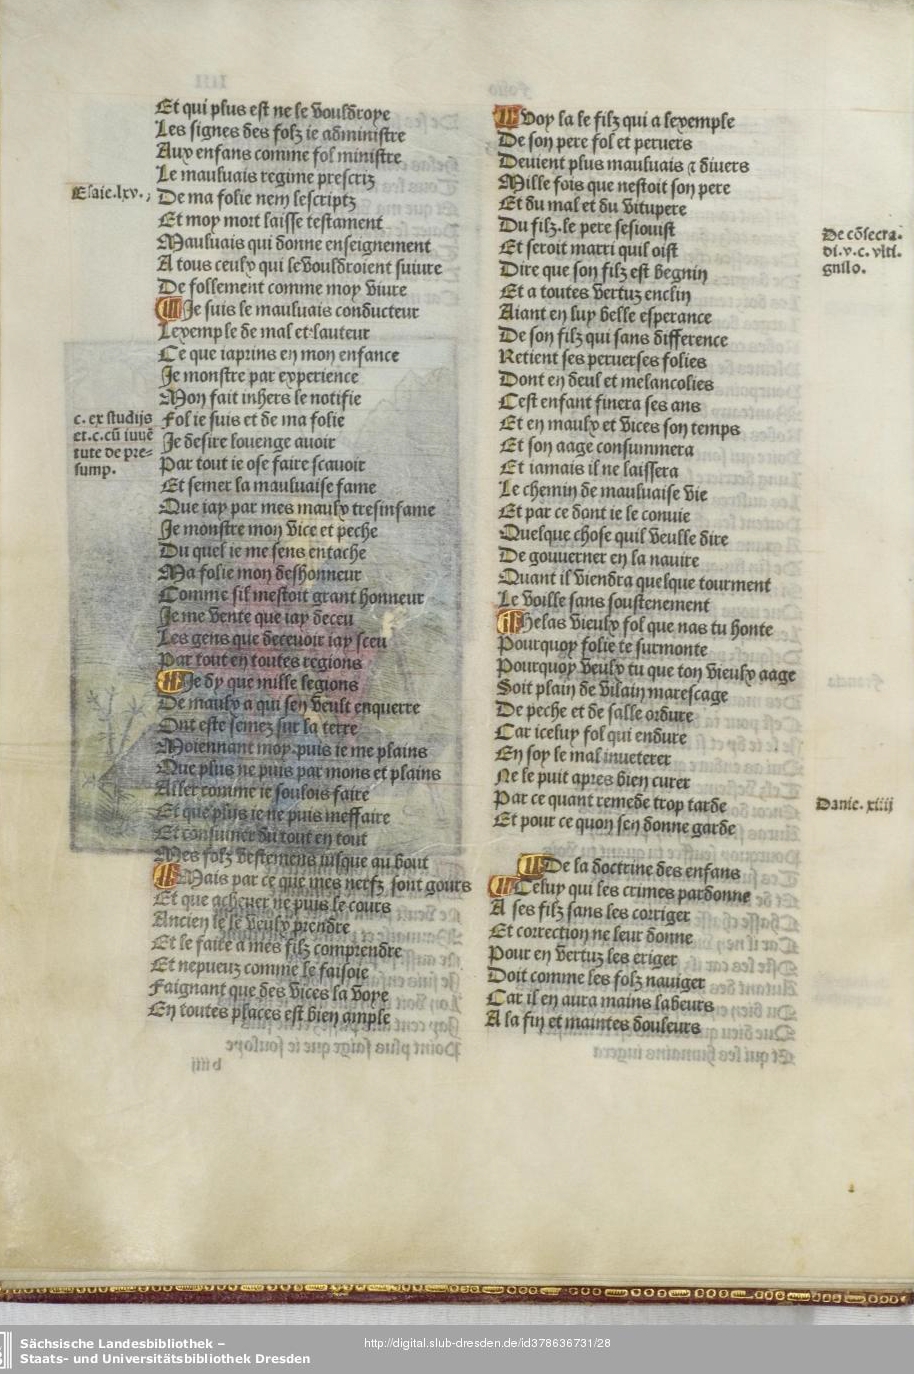 Et qui plus est ne le vouldroye
Les signes des folz ie administre
Aux enfans comme fol ministre
Le mauluais regime prescriz
Esaie.lxv.
De ma folie nem lescriptz
Et moy mort laisse testament
Mauluais qui donne enseignement
A tous ceulx qui levouldroient suiure
De follement comme moy viure
Je suis le mauluais conducteur
Lexemple de mal et lauteur
Ce que iaprins en mon enfance
Je monstre par experience
Mon fait inhers le notifie
c. ex studijs
et.c.cū iuuē
tute de pre=
sump.
Fol ie suis et de ma folie
Je desire louenge auoir
Par tout ie ose faire scauoir
Et semer la mauluaise fame
Que iay par mes maulx tresinfame
Je monstre mon vice et peche
Du quel ie me sens entache
Ma folie mon deshonneur
Comme sil mestoit grant honneur
Je me vente que iay deceu
Les gens que deceuoir iay sceu
Par tout en toutes regions
Je dy que mille legions
De maulx a qui sen veult enquerre
Ont este semez sur la terre
Moiennant moy.puis ie me plains
Que plus ne puis par mons et plains
Aller comme ie soulois faire
Et que plus ie ne puis meffaire
Et consumer du tout en tout
Mes folz vestemens iusque au bout
Mais par ce que mes nerfz sont gours
Et que acheuer ne puis le cours
Ancien le le veulx prendre
Et le faire a mes filz comprendre
Et nepueuz comme le faisoie
Faignant que des vices la voye
En toutes places est bien ample
Voy la le filz qui a lexemple
De son pere fol et peruers
Deuient plus mauluais ⁊ diuers
Mille fois que nestoit son pere
Et du mal et du vitupere
Du filz.le pere sesiouist
De cōsecra.
di.v.c. vlti.
gnilo.
Et seroit marri quil oist
Dire que son filz est begnin
Et a toutes vertuz enclin
Aiant en luy belle esperance
De son filz qui sans difference
Retient ses peruerses folies
Dont en deul et melancolies
Cest enfant finera ses ans
Et en maulx et vices son temps
Et son aage consummera
Et iamais il ne laissera
Le chemin de mauluaise vie
Et par ce dont ie le conuie
Quelque chose quil veulle dire
De gouuerner en la nauire
Quant il viendra quelque tourment
Le voille sans soustenement
Helas vieulx fol que nas tu honte
Pourquoy folie te surmonte
Pourquoy veulx tu que ton vieulx aage
Soit plain de vilain marescage
De peche et de salle ordure
Car iceluy fol qui endure
En soy le mal inueterer
Ne le puit apres bien curer
Danie. xiiij
Par ce quant remede trop tarde
Et pour ce quon sen donne garde
De la doctrine des enfans
Celuy qui les crimes pardonne
A ses filz sans les corriger
Et correction ne leur donne
Pour en vertuz les eriger
Doit comme les folz nauiger
Car il en aura mains labeurs
A la fin et maintes douleurs
Sächsische Landesbibliothek –
Staats- und Universitätsbibliothek Dresden
http://digital.slub-dresden.de/id378636731/28